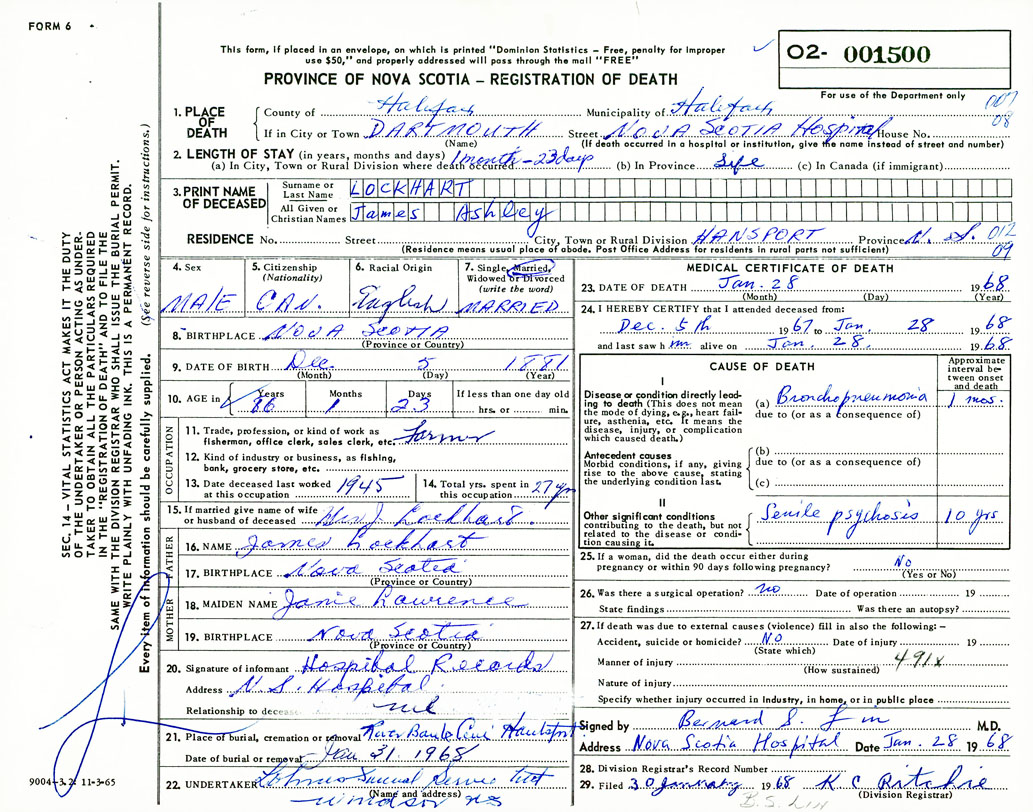 FORM 6
This form, if placed in an envelope, on which is printed "Dominion Statistics – Free, penalty for improper
use $50," and properly addressed will pass through the mail "FREE"
PROVINCE OF NOVA SCOTIA – REGISTRATION OF DEATH
02- 001500
For use of the Department only
SEC. 14 – VITAL STATISTICS ACT MAKES IT THE DUTY
OF THE UNDERTAKER OR PERSON ACTING AS UNDER-
TAKER TO OBTAIN ALL THE PARTICULARS REQUIRED
IN THE "REGISTRATION OF DEATH" AND TO FILE THE
SAME WITH THE DIVISION REGISTRAR WHO SHALL ISSUE THE BURIAL PERMIT.
WRITE PLAINLY WITH UNFADING INK. THIS IS A PERMANENT RECORD.
Every item of information should be carefully supplied. (See reverse side for instructions.)
1. PLACE OF DEATH
County of Halifax Municipality of Halifax 007
08
If in City or Town DARTMOUTH Street NOVA SCOTIA Hospital House No.
(Name) (If death occurred in a hospital or institution, give the name instead of street and number)
2. LENGTH OF STAY (in years, months and days)
(a) In City, Town or Rural Division where death occurred 1 month - 23 days (b) In Province Life (c) In Canada (if immigrant)
3. PRINT NAME OF DECEASED
Surname or Last Name LOCKHART
All Given or Christian Names James Ashley
RESIDENCE No. Street City, Town or Rural Division HANSPORT Province N. S. 012
09
(Residence means usual place of abode. Post Office Address for residents in rural parts not sufficient)
4. Sex
MALE
5. Citizenship
(Nationality)
CAN.
6. Racial Origin
English
7. Single, Married,
Widowed or Divorced
(write the word)
MARRIED
8. BIRTHPLACE NOVA SCOTIA
(Province or Country)
9. DATE OF BIRTH Dec. 5 1881
(Month) (Day) (Year)
10. AGE in Years Months Days If less than one day old
86 1 23 hrs. or min.
OCCUPATION
11. Trade, profession, or kind of work as
fisherman, office clerk, sales clerk, etc. Farmer
12. Kind of industry or business, as fishing,
bank, grocery store, etc.
13. Date deceased last worked
at this occupation 1945
14. Total yrs. spent in
this occupation 27 yrs
15. If married give name of wife
or husband of deceased Mrs. J. Lockhart.
FATHER
16. NAME James Lockhart
17. BIRTHPLACE Nova Scotia
(Province or Country)
MOTHER
18. MAIDEN NAME Janie Lawrence
19. BIRTHPLACE Nova Scotia
(Province or Country)
20. Signature of informant Hospital Records
Address N. S. Hospital.
Relationship to deceased nil
21. Place of burial, cremation or removal River Bank Cem Hantsport
Date of burial or removal Jan 31, 1968
22. UNDERTAKER
(Name and address)
Windsor NS
9004-3.2: 11-3-65
MEDICAL CERTIFICATE OF DEATH
23. DATE OF DEATH Jan. 28 1968
(Month) (Day) (Year)
24. I HEREBY CERTIFY that I attended deceased from:
Dec. 5th 1967 to Jan. 28 1968
and last saw him alive on Jan. 28. 1968.
CAUSE OF DEATH
Approximate
interval be-
tween onset
and death
I
Disease or condition directly lead-
ing to death (This does not mean
the mode of dying, e.g., heart fail-
ure, asthenia, etc. It means the
disease, injury, or complication
which caused death.)
(a) Bronchopneumonia 1 mos.
due to (or as a consequence of)
Antecedent causes
Morbid conditions, if any, giving
rise to the above cause, stating
the underlying condition last.
(b)
due to (or as a consequence of)
(c)
II
Other significant conditions
contributing to the death, but not
related to the disease or condi-
tion causing it.
Senile psychosis 10 yrs
25. If a woman, did the death occur either during
pregnancy or within 90 days following pregnancy? No
(Yes or No)
26. Was there a surgical operation? no Date of operation 19
State findings Was there an autopsy?
27. If death was due to external causes (violence) fill in also the following:–
Accident, suicide or homicide? NO Date of injury 19
(State which)
Manner of injury 491x
(How sustained)
Nature of injury
Specify whether injury occurred in industry, in home, or in public place
Signed by Bernard S. M.D.
Address Nova Scotia Hospital Date Jan. 28 1968
28. Division Registrar's Record Number
29. Filed 30 January 1968 K C Ritchie
(Division Registrar)